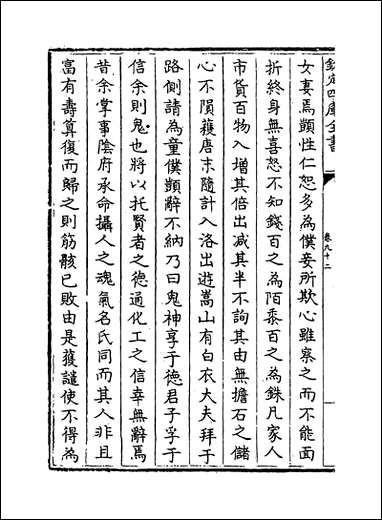 欽定四庫全書
卷九十二
女妻焉顗性仁恕多為僕妾所欺心雖察之而不能面
折終身無喜怒不知錢百之為陌黍百之為銖凡家人
市貨百物入增其倍出減其半不詢其由無擔石之儲
心不隕穫唐末隨計入洛出遊嵩山有白衣大夫拜于
路側請為童僕顗辭不納乃曰鬼神享于德君子孚于
信余則鬼也將以托賢者之德通化工之信幸無辭焉
昔余掌事陰府承命攝人之魂氣名氏同而其人非且
富有壽算復而歸之則筋骸已敗由是獲譴使不得為